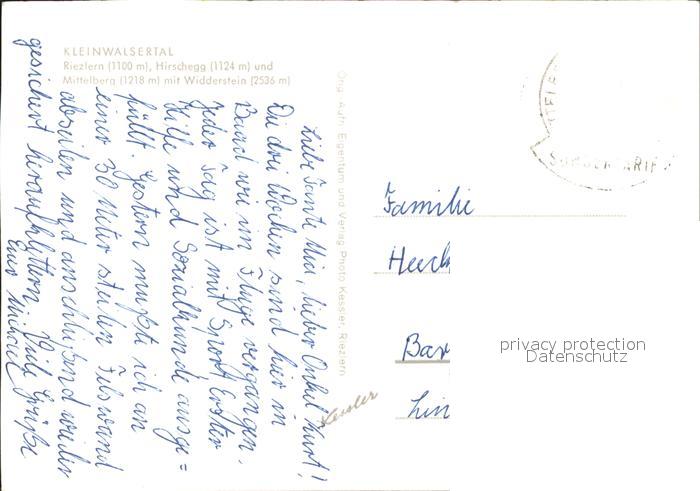 KLEINWALSERTAL
Riezlern (1100 m), Hirschegg (1124 m) und
Mittelberg (1218 m) mit Widderstein (2536 m)
Liebe Tante Mici, lieber Onkel Kurt!
Die drei Wochen sind hier in
Baad wie im Fluge vergangen.
Jeder Tag ist mit Sport, Erster
Hilfe und Sozialkunde ausge=
füllt. Gestern mußte ich an
einer 30 Meter steilen Felswand
abseilen und anschließend wieder
gesichert heraufklettern. Viele Grüße
Euer Michael
Orig. Aufn. Eigentum und Verlag Photo Kessler, Riezlern
Kessler
Familie
Heck
Bar
Lin
privacy protection
Datenschutz